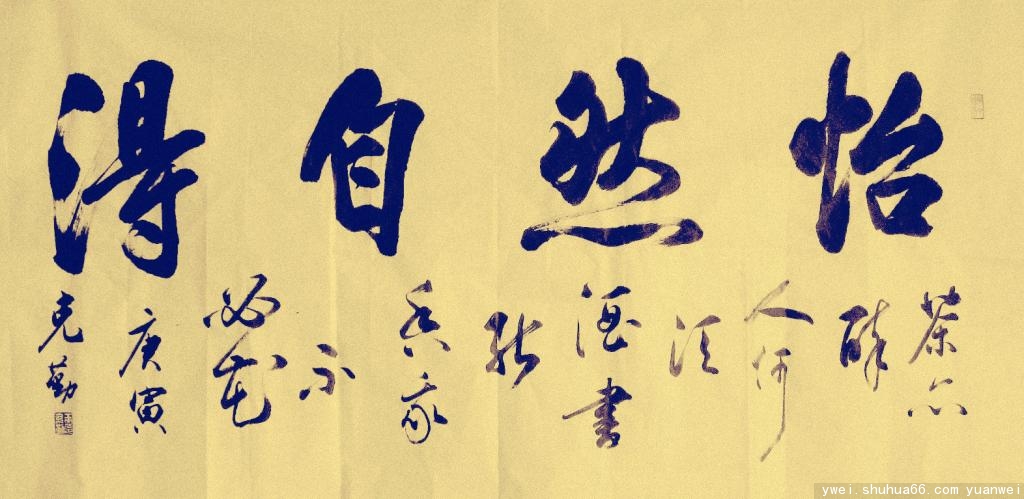 怡然自得
茶亦
醉
人何
须
酒书
能
香我
不
必花
庚寅
克勤
ywei.shuhua66.com yuanwei